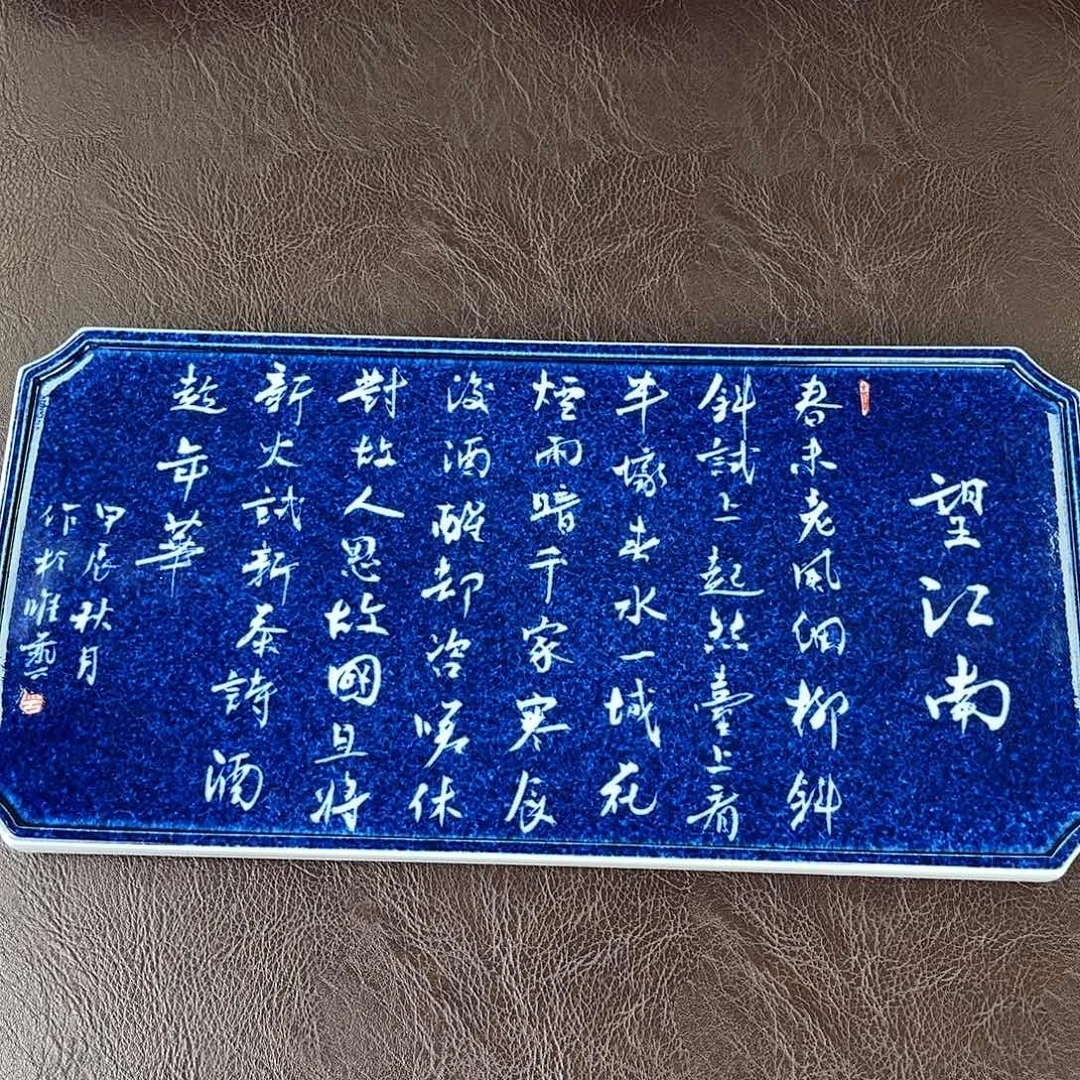 望江南
春未老風细柳斜
斜試上起然臺上看
半壕春水一城花
煙雨暗千家寒食
後酒醒却咨嗟休
對故人思故國且将
新火試新茶詩酒
趁年華
甲辰秋月
作於唯藝